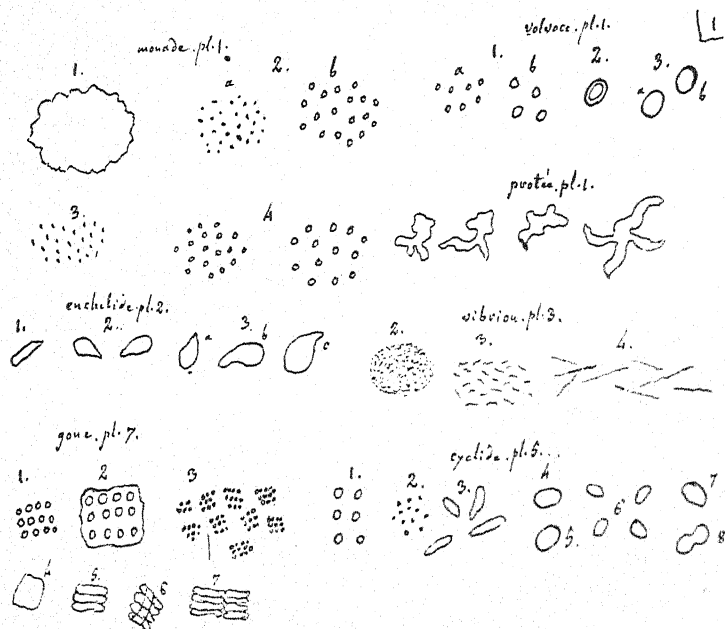 monade. pl. 1.
1.
2.
a
b
3.
4
volvoce. pl. 1.
1
1.
a
b
2.
3.
a
b
protée. pl. 1.
enchelide. pl. 2.
1.
2..
3.
a
b
c
vibrion. pl. 3.
2.
3.
4.
gone. pl. 7.
1.
2
3
4
5.
6
7
cyclide. pl. 5...
1.
2.
3.
4
5.
6
7
8